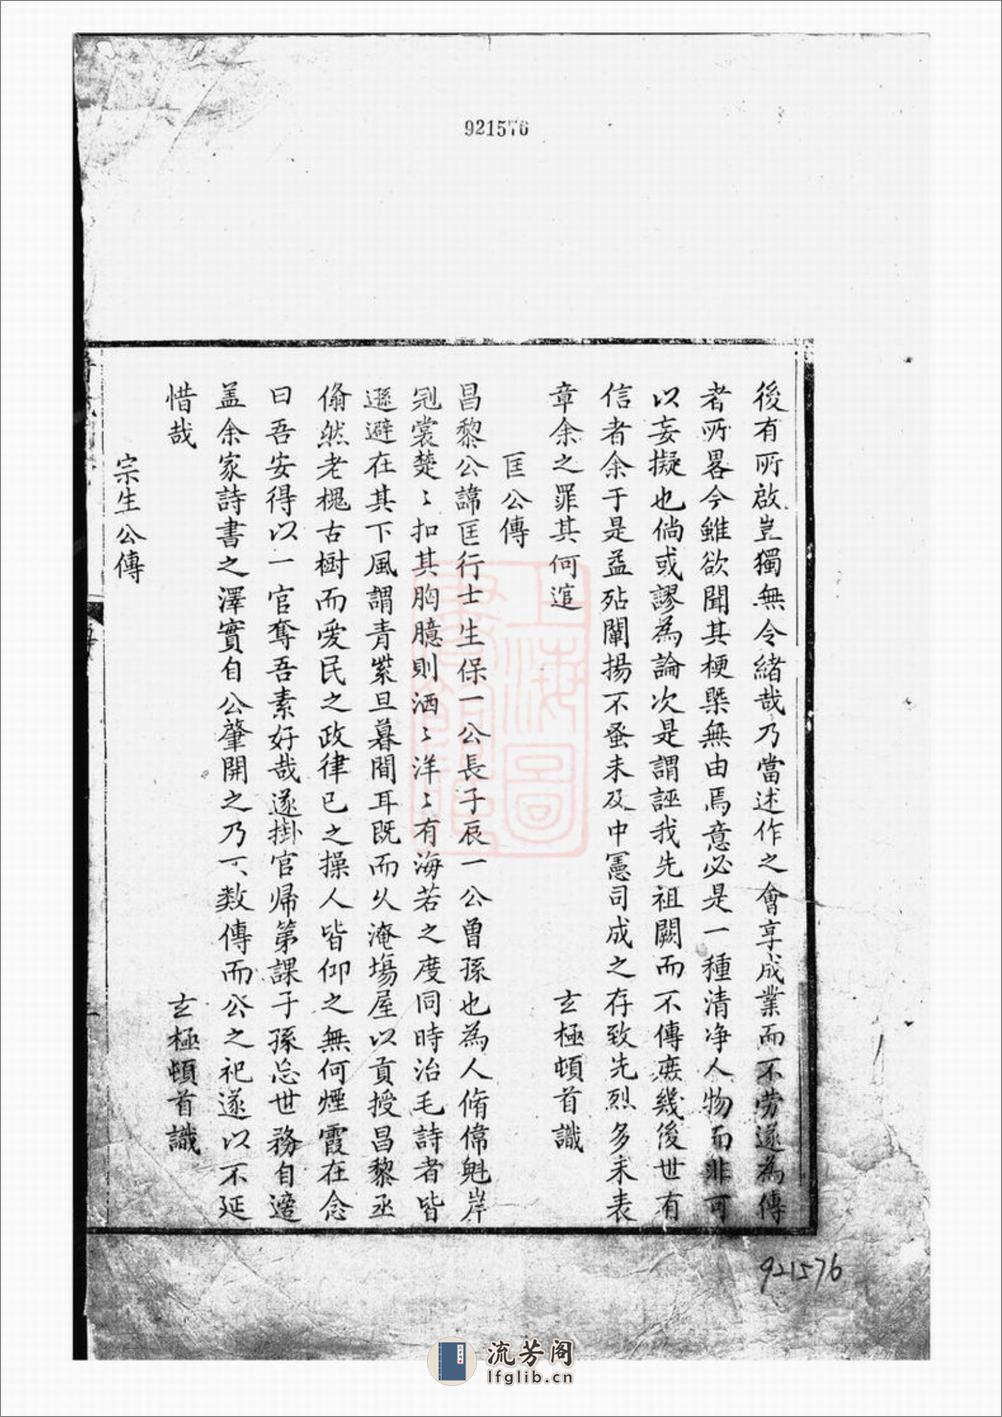 921576
後有所啟豈獨無令緒哉乃當述作之會享成業而不劳遂為傳
者所畧今雖欲聞其梗槩無由焉意必是一種清净人物而非可
以妄擬也倘或謬為論次是謂誣我先祖闕而不傳庶幾後世有
信者余于是益阽闡揚不蚤未及中憲司成之存致先烈多未表
章余之罪其何逭 玄極頓首識
匡公傳
昌黎公諱匡行士生保一公長子辰一公曽孫也為人脩偉魁岸
冠裳楚〻扣其胸臆則洒〻洋〻有海若之度同時治毛詩者皆
遜避在其下風謂青紫旦暮間耳既而久淹塲屋以貢授昌黎丞
翛然老槐古樹而愛民之政律已之操人皆仰之無何煙霞在念
曰吾安得以一官奪吾素好哉遂掛官帰第課子孫忘世務自適
盖余家詩書之澤實自公肇開之乃不数傳而公之祀遂以不延
惜哉 玄極頓首識
宗生公傳
上海圖
書館藏
921576
流芳阁
lfglib.cn